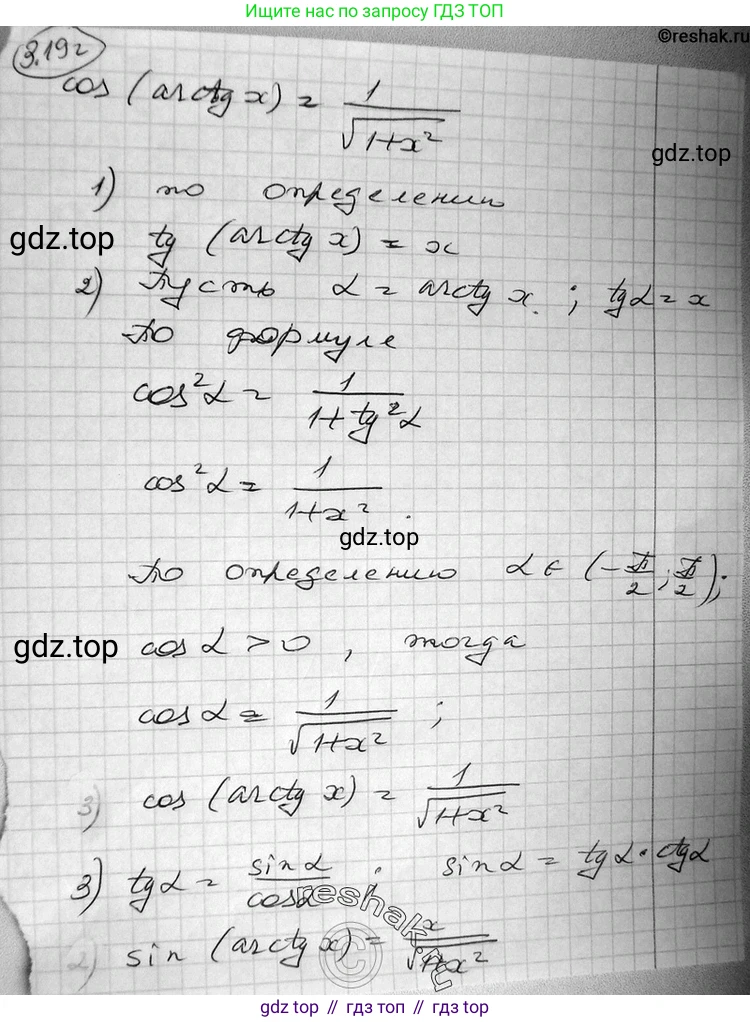 Больше решений по запросу ГДЗ ТОП
©reshak.ru
3.192
cos (arctg x) = 1/√(1+x²)
gdz.top
1) по определению
gdz.top
tg (arctg x) = x
2) Пусть α = arctg x. ; tgα = x
По формуле
cos²α = 1/(1+tg²α)
cos²α = 1/(1+x²).
gdz.top
По определению α ∈ (-π/2; π/2);
gdz.top
cos α > 0, тогда
cosα = 1/√(1+x²) ;
3) cos (arctg x) = 1/√(1+x²)
3) tgα = sinα/cosα ; sinα = tgα · ctgα
reshak.ru
©
2) sin (arctg x) = x/√(1+x²)
gdz top // гдз топ // gdz.top // гдз топ